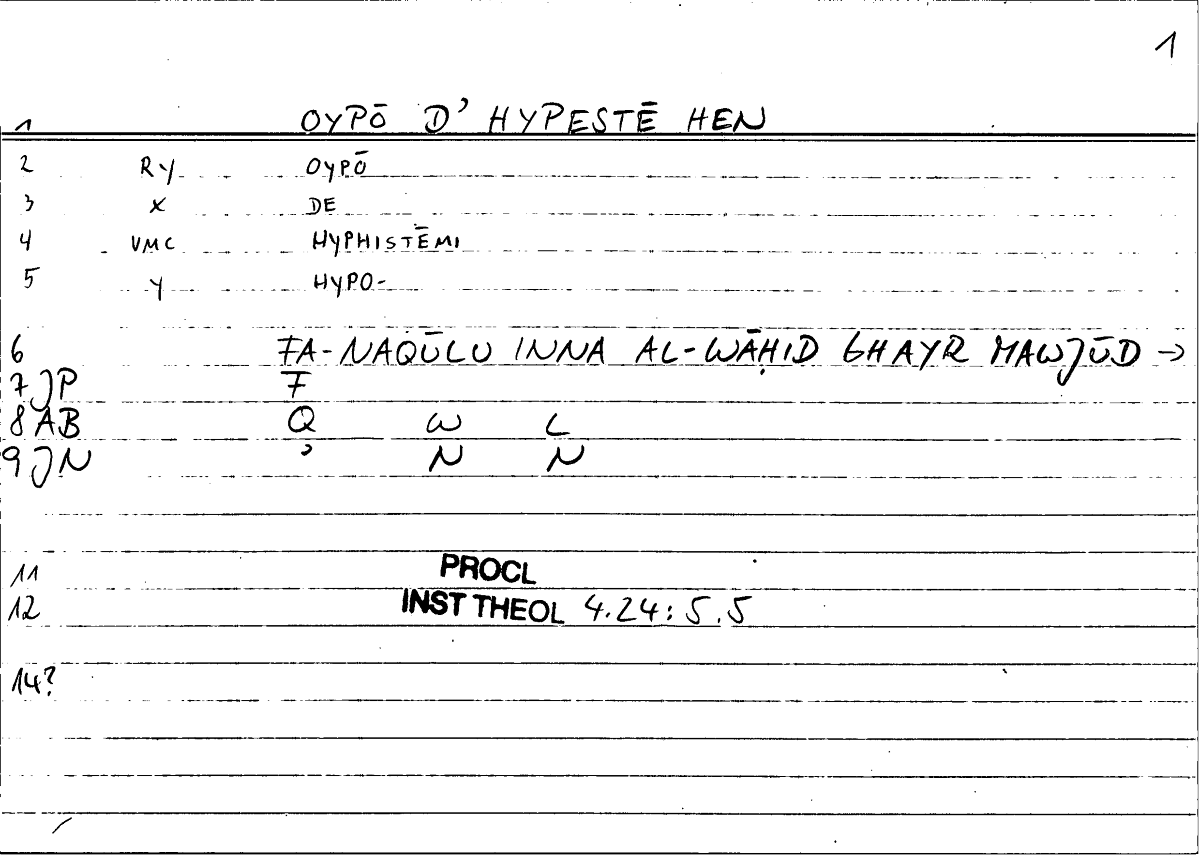 1
1 OYPŌ D' HYPESTĒ HEN
2 RY OYPŌ
3 X DE
4 VMC HYPHISTĒMI
5 Y HYPO-
6 FA-NAQŪLU INNA AL-WĀḤID GHAYR MAWJŪD →
7 JP F
8 AB Q W L
9 JN ' N N
11 PROCL
12 INST THEOL 4.24: 5.5
14?